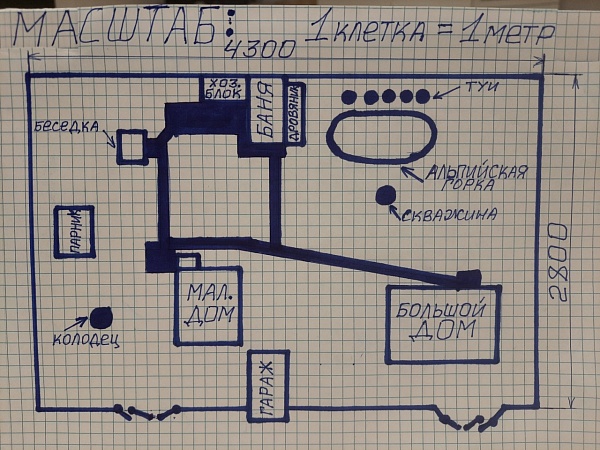 МАСШТАБ: 1 клетка = 1 метр
4300
ХОЗ.
БЛОК
БАНЯ
ДРОВЯНИК
ТУИ
БЕСЕДКА
АЛЬПИЙСКАЯ
ГОРКА
СКВАЖИНА
ПАРНИК
2800
МАЛ.
ДОМ
БОЛЬШОЙ
ДОМ
КОЛОДЕЦ
ГАРАЖ